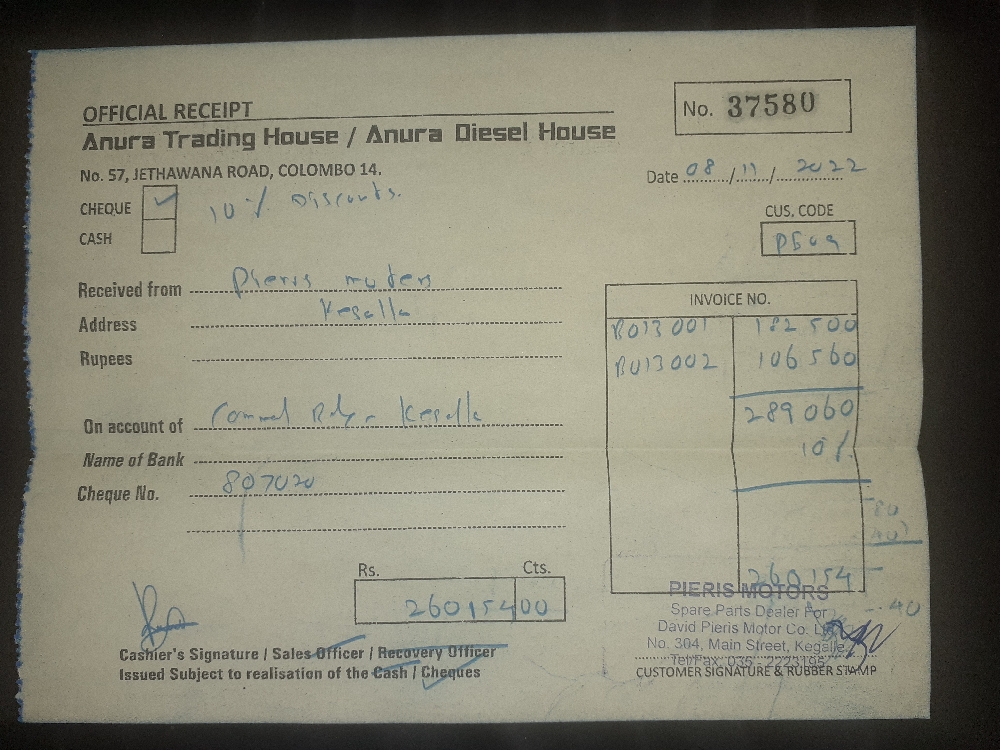 OFFICIAL RECEIPT
No. 37580
Anura Trading House / Anura Diesel House
No. 57, JETHAWANA ROAD, COLOMBO 14.
Date 08/11/2022
CHEQUE ✓ 10% Discounts.
CASH
CUS. CODE
Received from Pieris motors
Address Kegalle
Rupees
INVOICE NO.
B013001 182 500
B013002 106 560
289060
10%
On account of Kegalle
Name of Bank
Cheque No. 807020
260154
Rs. Cts.
260154 00
PIERIS MOTORS
Spare Parts Dealer For
David Pieris Motor Co. Ltd
No. 304, Main Street, Kegalle.
Tel/Fax: 035 - 2223195
Cashier's Signature / Sales Officer / Recovery Officer
Issued Subject to realisation of the Cash / Cheques
CUSTOMER SIGNATURE & RUBBER STAMP